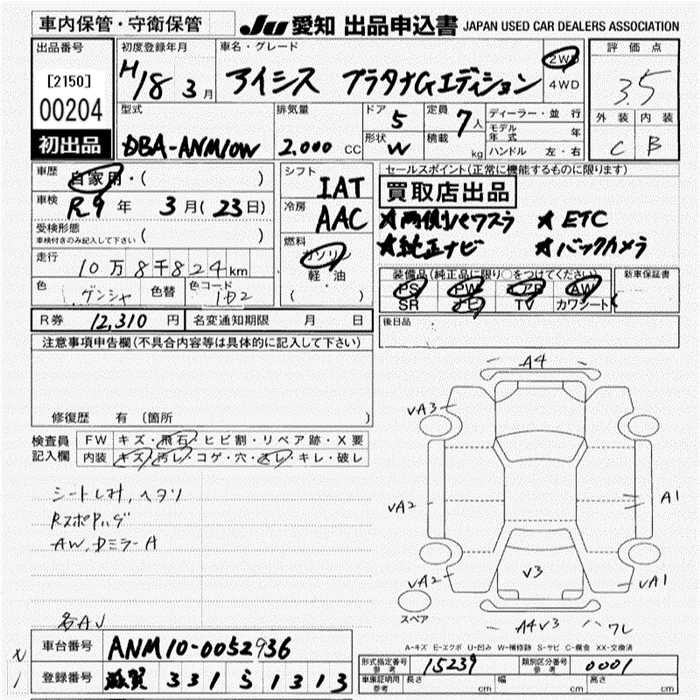 車内保管・守衛保管
JU 愛知 出品申込書 JAPAN USED CAR DEALERS ASSOCIATION
出品番号
[2150]
00204
初出品
初度登録年月
H/18 3月
車名・グレード
アイシス プラタナGエディション
2WD
4WD
評価点
3.5
外装 内装
C B
型式
DBA-ANM10W
排気量
2.000 CC
ドア 5
形状 W
定員 7人
積載 kg
ディーラー・並行
モデル年式 年
ハンドル 左・右
車歴
自家用・( )
車検
R9年 3月(23日)
受検形態
車検付きのみ記入して下さい ( )
走行
10万8千824km
色 ゲンシャ 色替 色コード 1D2
シフト
IAT
冷房
AAC
燃料
ガソリン
軽・油
( )
セールスポイント(正常に機能するものに限ります)
買取店出品
★両側パワスラ ★ETC
★純正ナビ ★バックカメラ
装備品(純正品に限り○をつけてください)
PS PW エアB AW
SR ナビ TV カワシート
新車保証書
後日品
R券 12,310円 名変通知期限 月 日
注意事項申告欄(不具合内容等は具体的に記入して下さい)
修復歴 有 (箇所 )
検査員記入欄
FW キズ・飛石・ヒビ割・リペア跡・X要
内装 キズ・汚レ・コゲ・穴・スレ・キレ・破レ
シートしみ,ヘタリ
RスポPハゲ
AW,DミラーA
各AU
A4
VA3
VA2
A1
VA2
V3
VA1
スペア
A4V3 ワレ
A-キズ E-エクボ U-凹み W-補修跡 S-サビ C-腐食 XX-交換済
車台番号 ANM10-0052936
登録番号 滋賀 331 ら 1313
形式指定番号 参考 15239
類別区分番号 参考 0001
車庫証明用 参考 長さ cm 幅 cm 高さ cm